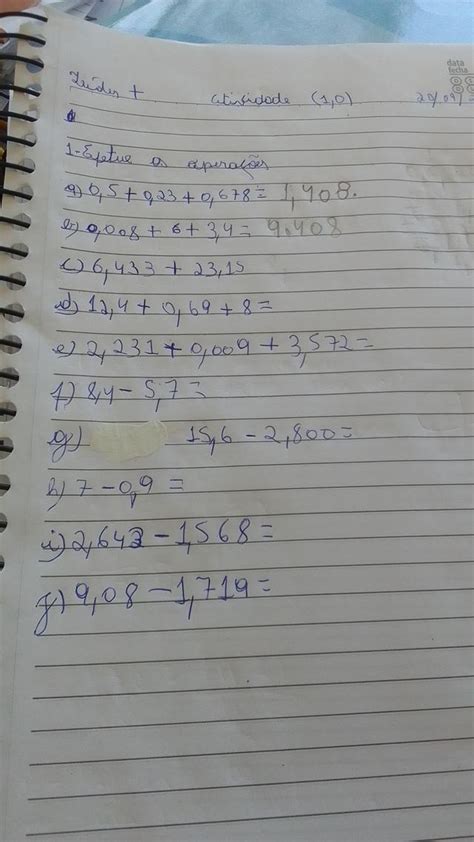 data
fecha
atividade (1,0) 20/09/
1-Efetue as operações
a) 0,5 + 0,23 + 0,678 = 1,408.
b) 0,008 + 6 + 3,4 = 9.408
c) 6,433 + 23,15
d) 12,4 + 0,69 + 8 =
e) 2,231 + 0,009 + 3,572 =
f) 8,4 - 5,7 =
g) 15,6 - 2,800 =
h) 7 - 0,9 =
i) 2,643 - 1,568 =
j) 9,08 - 1,719 =